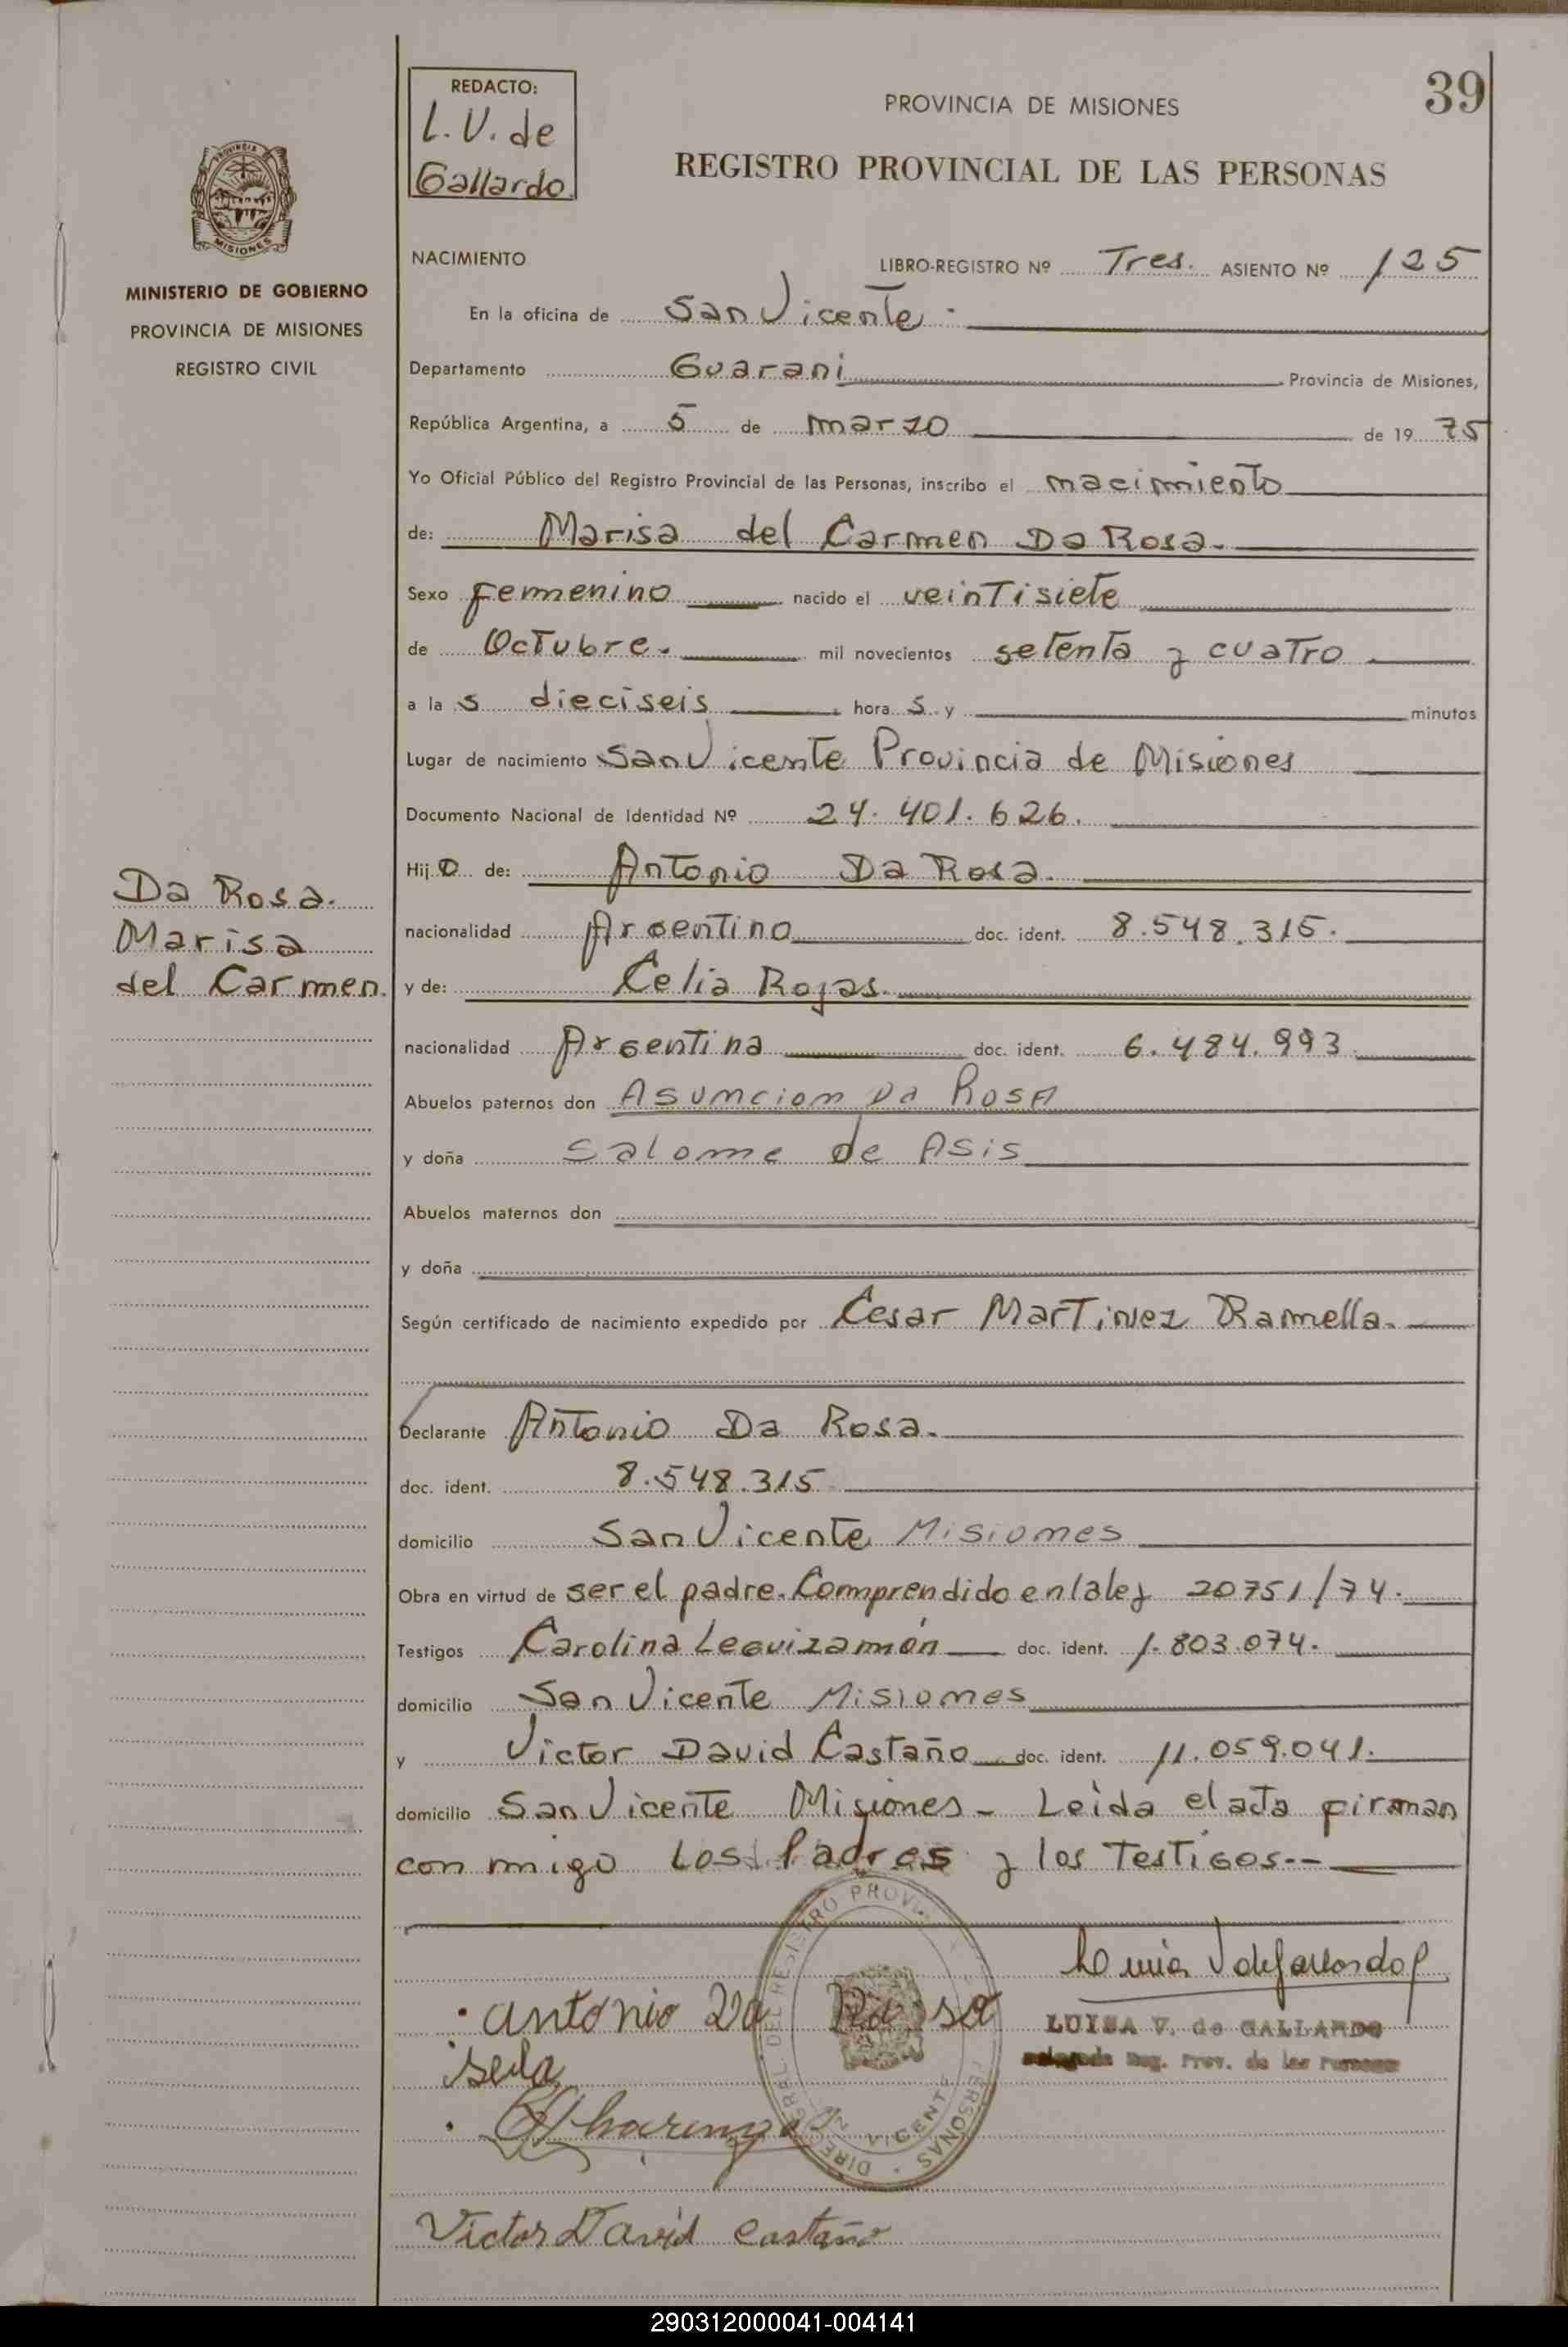 39
REDACTO:
L. V. de
Gallardo
PROVINCIA DE MISIONES
REGISTRO PROVINCIAL DE LAS PERSONAS
PROVINCIA DE
MISIONES
MINISTERIO DE GOBIERNO
PROVINCIA DE MISIONES
REGISTRO CIVIL
NACIMIENTO
LIBRO-REGISTRO Nº Tres. ASIENTO Nº 125
En la oficina de San Vicente -
Departamento Guarani Provincia de Misiones,
República Argentina, a 5 de marzo de 19 75
Yo Oficial Público del Registro Provincial de las Personas, inscribo el nacimiento
de: Marisa del Carmen Da Rosa.
Sexo femenino nacido el veintisiete
de Octubre. mil novecientos setenta y cuatro
a la s dieciseis hora s y minutos
Lugar de nacimiento San Vicente Provincia de Misiones
Documento Nacional de Identidad Nº 24.401.626.
Hij a de: Antonio Da Rosa.
nacionalidad Argentino doc. ident. 8.548.315.
y de: Celia Rojas.
nacionalidad Argentina doc. ident. 6.484.993
Abuelos paternos don Asuncion Da Rosa
y doña Salome de Asis
Abuelos maternos don
y doña
Según certificado de nacimiento expedido por Cesar Martinez Ramella.
Declarante Antonio Da Rosa.
doc. ident. 8.548.315
domicilio San Vicente Misiones
Obra en virtud de ser el padre. Comprendido en la ley 20751/74.
Testigos Carolina Leguizamón doc. ident. 1.803.074.
domicilio San Vicente Misiones
y Victor David Castaño doc. ident. 11.059.041.
domicilio San Vicente Misiones - Leida el acta firman
con migo Los Padres y los Testigos--
Da Rosa.
Marisa
del Carmen.
antonio Da Rosa
LUISA V. de GALLARDO
Delegada Reg. Prov. de las Personas
Victor David Castaño
290312000041-004141